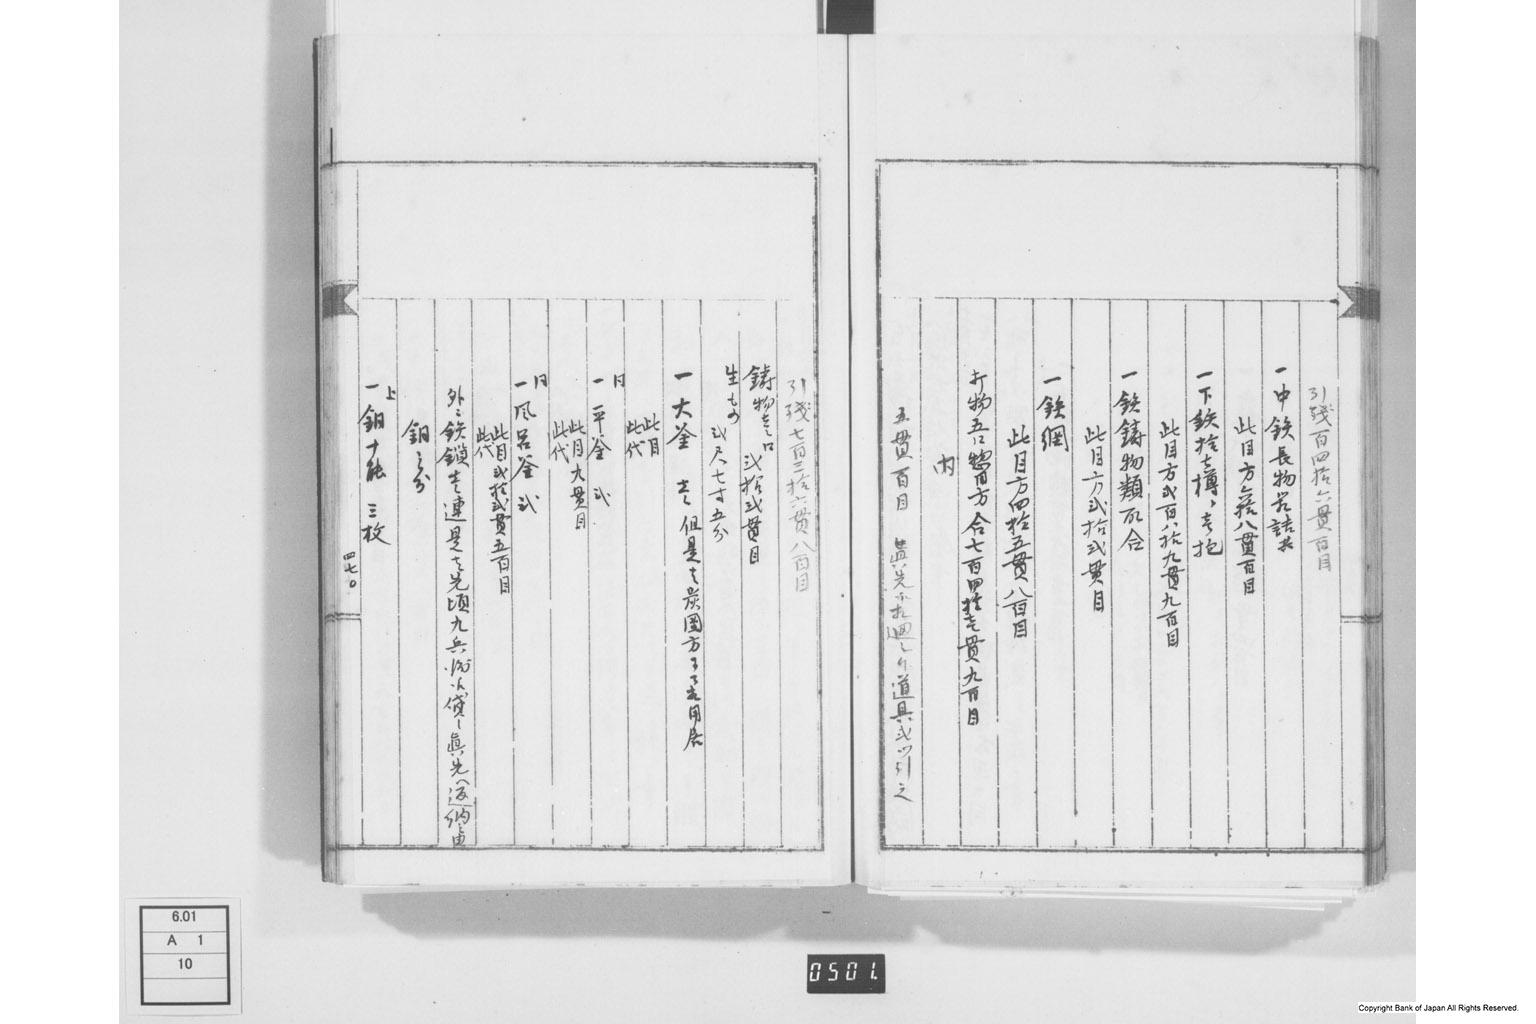 引残百四拾六貫百目
一中鉄長物
此目方 八貫百目
一下鉄拾壱樽、壱抱
此目方弐百八拾九貫九百目
一鉄鋳物類取合
此目方弐拾弐貫目
一鉄網
此目方四拾五貫八百目
打物五口惣目方合七百四拾壱貫九百目
内
五貫百目 道具弐 引之
引残七百三拾六貫八百目
鋳物壱口 弐拾弐貫目
生もの 弐尺七寸五分
一大釜 壱 但是は炭團方
此目
此代
同
一平釜 弐
此目九貫目
此代
同
一風呂釜 弐
此目弐拾弐貫五百目
此代
外ニ鉄鎖壱連是は先頃九兵衛 貸し真先へ返納
銅之分
上
一銅十能 三枚
四七〇
6.01
A 1
10
0501.
Copyright Bank of Japan All Rights Reserved.